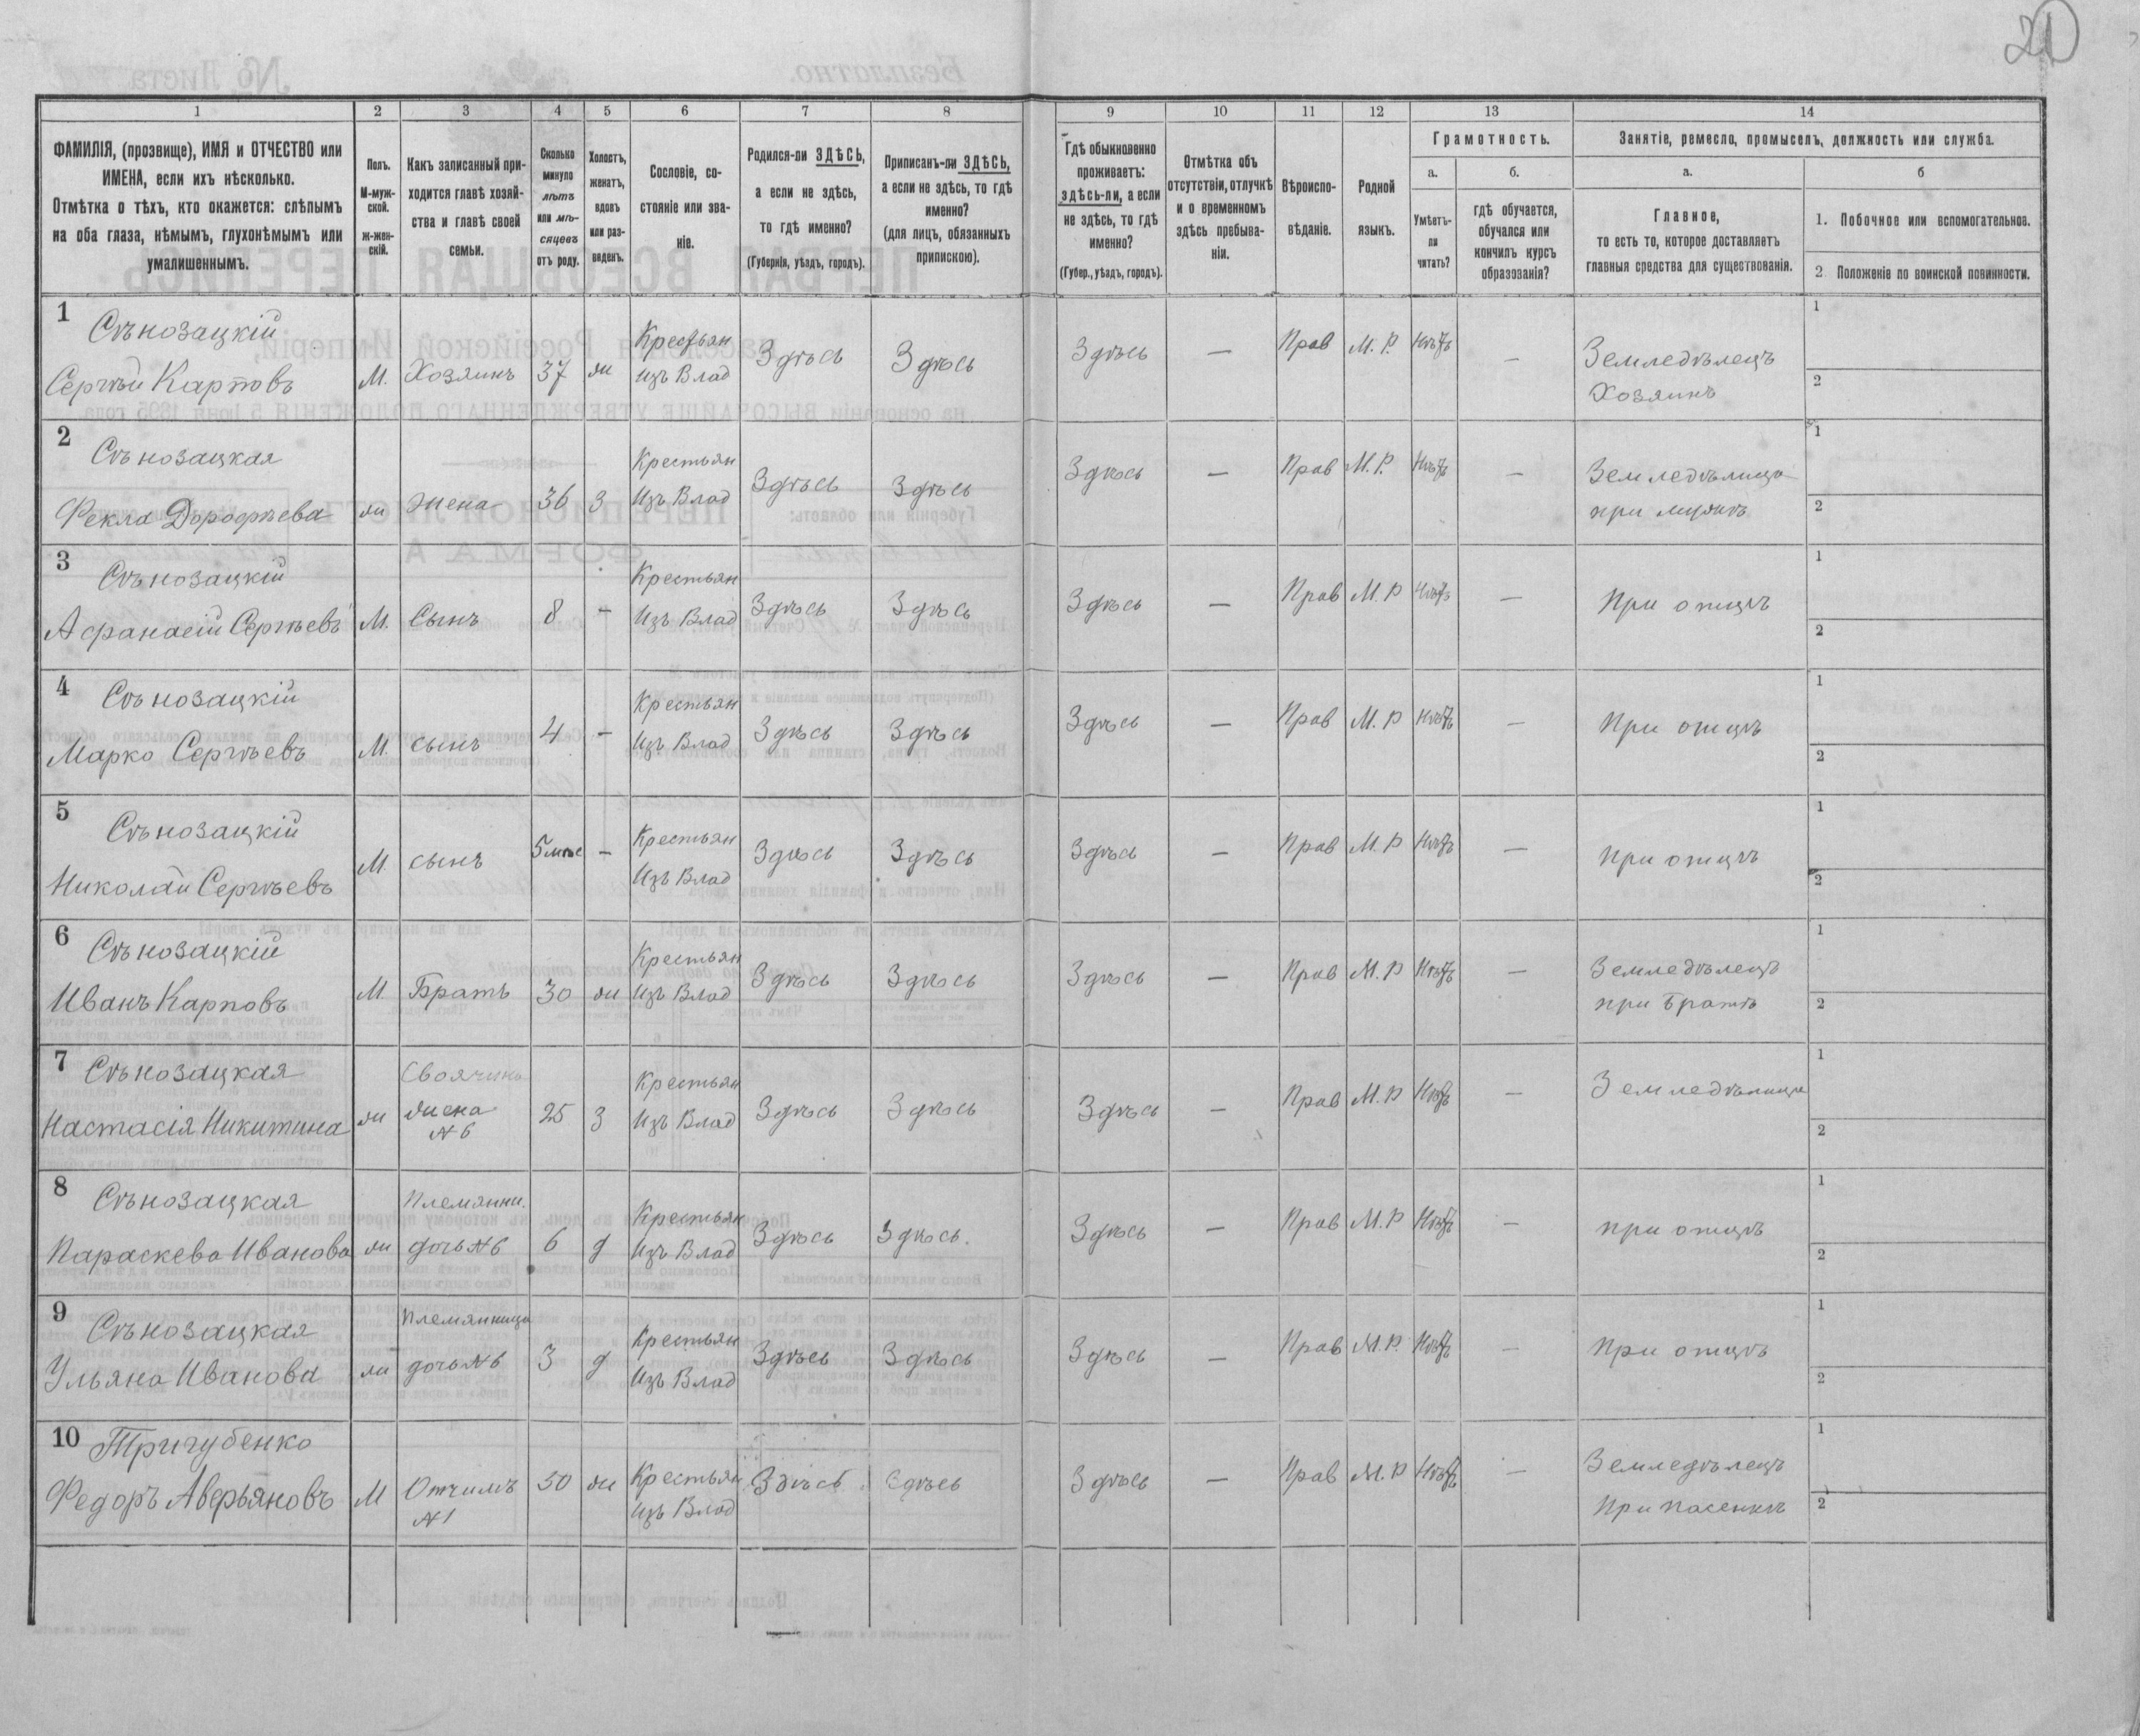 21
1
2
3
4
5
6
7
8
9
10
11
12
13
14
ФАМИЛІЯ, (прозвище), ИМЯ и ОТЧЕСТВО или
ИМЕНА, если ихъ нѣсколько.
Отмѣтка о тѣхъ, кто окажется: слѣпымъ
на оба глаза, нѣмымъ, глухонѣмымъ или
умалишеннымъ.
Полъ.
М-муж-
ской.
ж-жен-
скій.
Какъ записанный при-
ходится главѣ хозяй-
ства и главѣ своей
семьи.
Сколько
минуло
лѣтъ
или мѣ-
сяцевъ
отъ роду.
Холостъ,
женатъ,
вдовъ
или раз-
веденъ.
Сословіе, со-
стояніе или зва-
ніе.
Родился-ли ЗДѢСЬ,
а если не здѣсь,
то гдѣ именно?
(Губернія, уѣздъ, городъ).
Приписанъ-ли ЗДѢСЬ,
а если не здѣсь, то гдѣ
именно?
(для лицъ, обязанныхъ
припискою).
Гдѣ обыкновенно
проживаетъ:
здѣсь-ли, а если
не здѣсь, то гдѣ
именно?
(Губер., уѣздъ, городъ).
Отмѣтка объ
отсутствіи, отлучкѣ
и о временномъ
здѣсь пребыва-
ніи.
Вѣроиспо-
вѣданіе.
Родной
языкъ.
Грамотность.
а.
Умѣетъ-
ли
читать?
б.
гдѣ обучается,
обучался или
кончилъ курсъ
образованія?
Занятіе, ремесло, промыселъ, должность или служба.
а.
Главное,
то есть то, которое доставляетъ
главныя средства для существованія.
б
1. Побочное или вспомогательное.
2 Положеніе по воинской повинности.
1 Сѣнозацкій
Сергѣй Карповъ М. Хозяинъ 37 ж Крестьян Изъ Влад Здѣсь Здѣсь Здѣсь — Прав М. Р. Нѣтъ — Земледѣлецъ
Хозяинъ
1
2
2 Сѣнозацкая
Фекла Дорофѣева ж жена 36 З Крестьян Изъ Влад Здѣсь Здѣсь Здѣсь — Прав М. Р. Нѣтъ — Земледѣлица
при мужѣ
1
2
3 Сѣнозацкій
Афанасій Сергѣевъ М. Сынъ 8 — Крестьян Изъ Влад Здѣсь Здѣсь Здѣсь — Прав М. Р Нѣтъ — При отцѣ
1
2
4 Сѣнозацкій
Марко Сергѣевъ М. сынъ 4 — Крестьян Изъ Влад Здѣсь Здѣсь Здѣсь — Прав М. Р Нѣтъ — При отцѣ
1
2
5 Сѣнозацкій
Николай Сергѣевъ М сынъ 5 мѣс — Крестьян Изъ Влад Здѣсь Здѣсь Здѣсь — Прав М. Р Нѣтъ — при отцѣ
1
2
6 Сѣнозацкій
Иванъ Карповъ М Братъ 30 ж Крестьян Изъ Влад Здѣсь Здѣсь Здѣсь — Прав М. Р Нѣтъ — Земледѣлецъ
при братѣ
1
2
7 Сѣнозацкая Своячина
Настасія Никитина ж жена N 6 25 З Крестьян Изъ Влад Здѣсь Здѣсь Здѣсь — Прав М. Р Нѣтъ — Земледѣлица
1
2
8 Сѣнозацкая Племянни.
Параскева Иванова ж дочь N 6 6 д Крестьян Изъ Влад Здѣсь Здѣсь. Здѣсь — Прав М. Р Нѣтъ — при отцѣ
1
2
9 Сѣнозацкая Племянница
Ульяна Иванова ж дочь N 6 3 д Крестьян Изъ Влад Здѣсь Здѣсь Здѣсь — Прав М. Р. Нѣтъ — При отцѣ
1
2
10 Тригубенко
Федоръ Аверьяновъ М Отчимъ N 1 50 ж Крестьян Изъ Влад Здѣсь Здѣсь Здѣсь — Прав М. Р Нѣтъ — Земледѣлецъ
При пасенкѣ
1
2